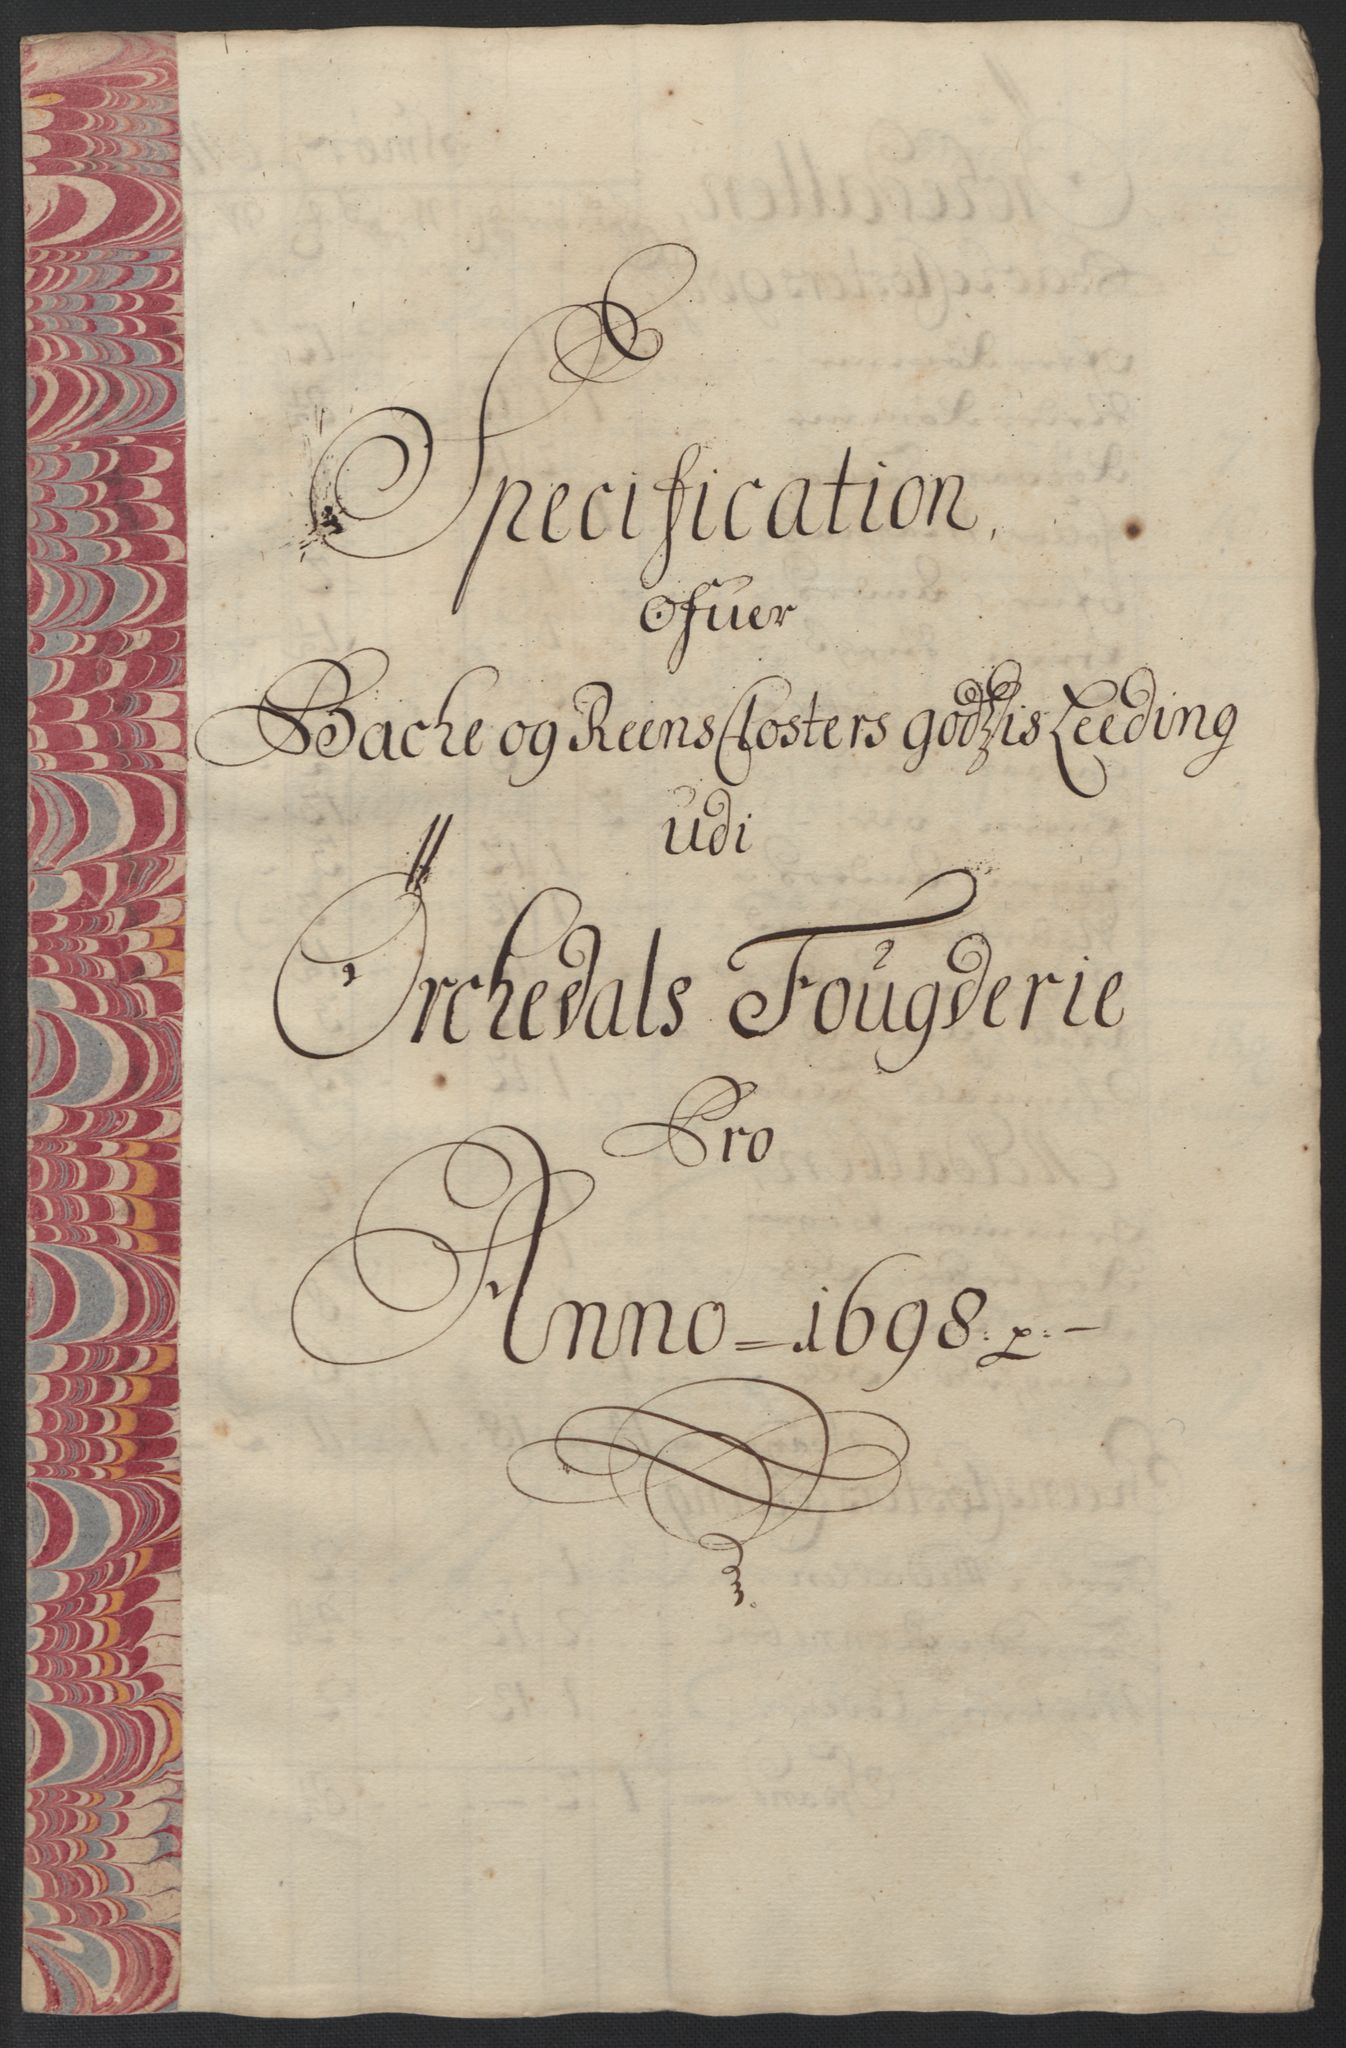 Specification,
ofuer
Bache og Reens Closters godtzis Leeding
udi
Örchedals Foùgderie
Pro
Anno = 1698